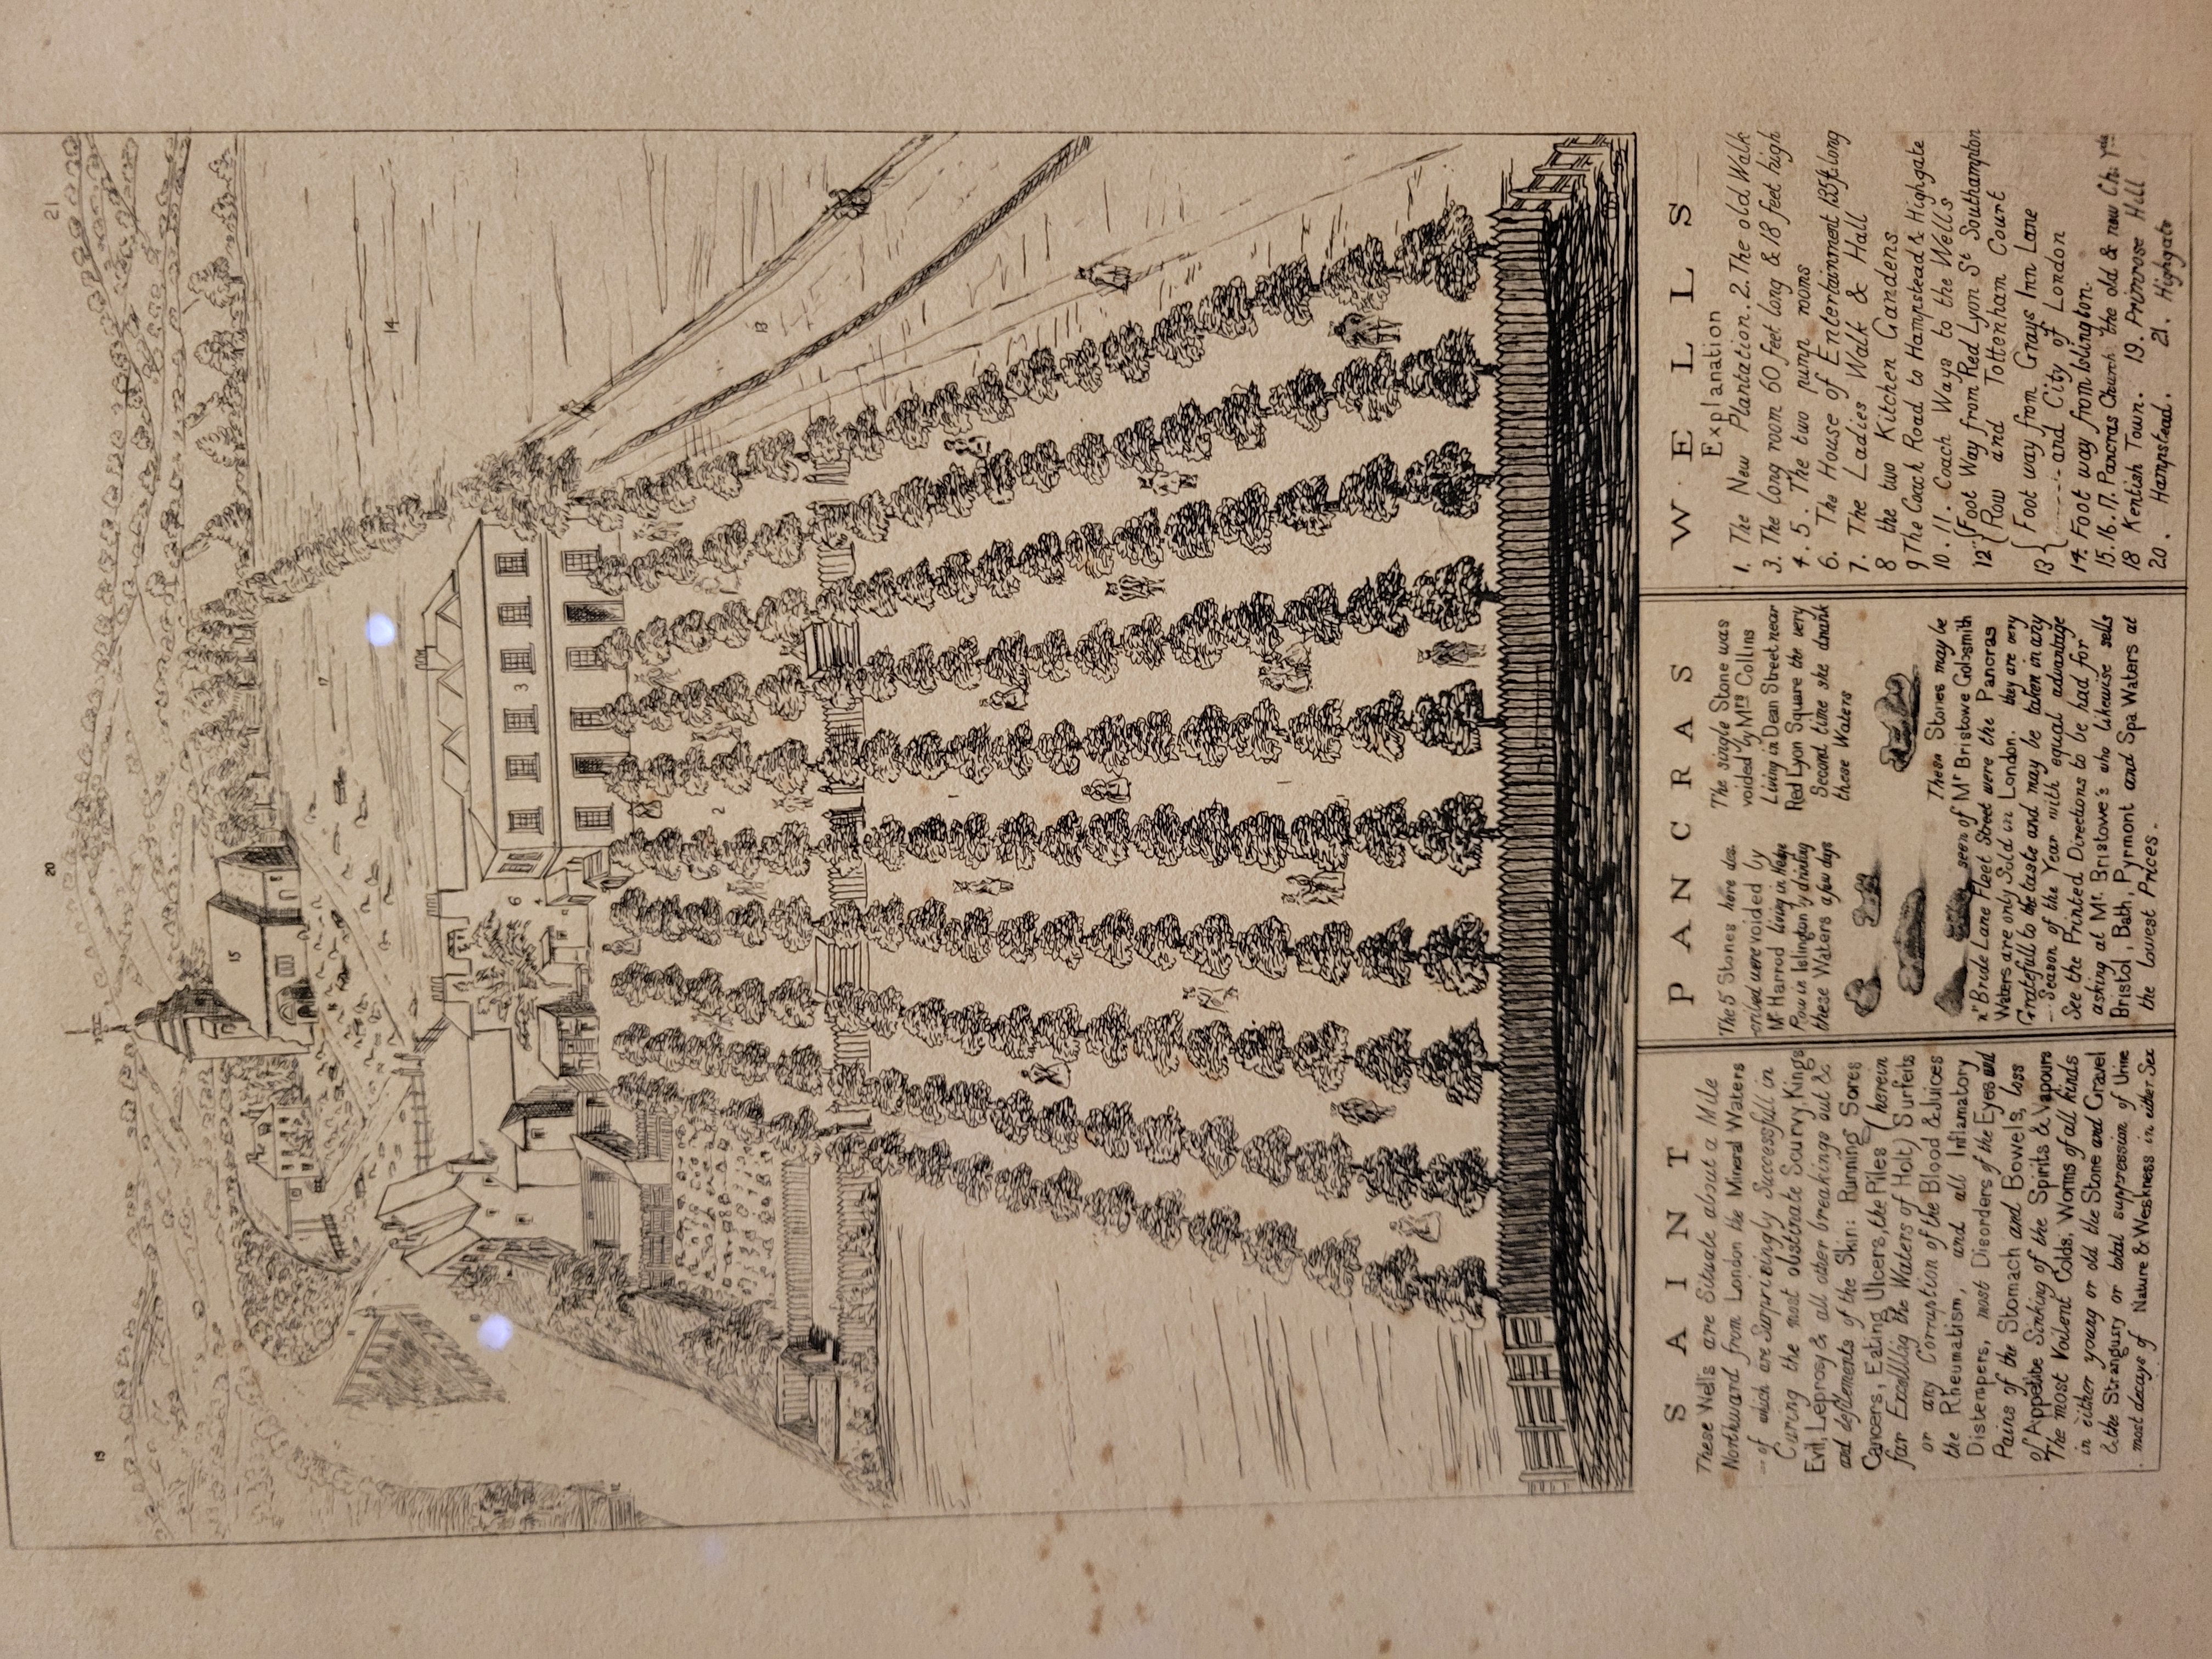 19
20
21
14
15
17
13
3
6
4
2
1
SAINT PANCRAS WELLS
These Wells are Situate about a Mile
Northward from London the Mineral Waters
of which are Surprizingly Successfull in
Curing the most obstinate Scurvy, Kings
Evil, Leprosy & all other breakings out &
and defilements of the Skin: Running Sores
Cancers, Eating Ulcers, the Piles (herein
far Excelling the Waters of Holt) Surfeits
or any Corruption of the Blood & Juices
the Rheumatism, and all Inflamatory
Distempers, most Disorders of the Eyes and
Pains of the Stomach and Bowels, loss
of Appetite Sinking of the Spirits & Vapours
The most Voilent Colds, Worms of all kinds
in either young or old the Stone and Gravel
& the Strangury or total suppression of Urine
most decays of Nature & Weakness in either Sex
The 5 Stones here des
cribed were voided by
Mr. Harrod living in Hedge
Row in Islington by drinking
these Waters a few days
The single Stone was
voided by Mrs Collins
Living in Dean Street near
Red Lyon Square the very
Second time she drank
these Waters
These Stones may be
seen of Mr Bristowe Goldsmith
Bride Lane Fleet Street were the Pancras
Waters are only Sold in London. they are very
Gratefull to the taste and may be taken in any
Season of the Year with equal advantage
See the Printed Directions to be had for
asking at Mr. Bristowe's who likewise sells
Bristol, Bath, Pyrmont and Spa Waters at
the lowest Prices.
Explanation
1. The New Plantation. 2. The old Walk
3. The long room 60 feet long & 18 feet high
4. 5. The two pump rooms
6. The House of Entertainment 135ft long
7. The Ladies Walk & Hall
8 the two Kitchen Gardens
9 The Coach Road to Hampstead & Highgate
10. 11. Coach Ways to the Wells
12 {Foot Way from Red Lyon St Southampton
Row and Tottenham Court
13 {Foot way from Grays Inn Lane
------and City of London
14. Foot way from Islington.
15. 16. 17. Pancras Church the old & new Ch. Yds
18 Kentish Town. 19. Primrose Hill
20. Hampstead. 21. Highgate